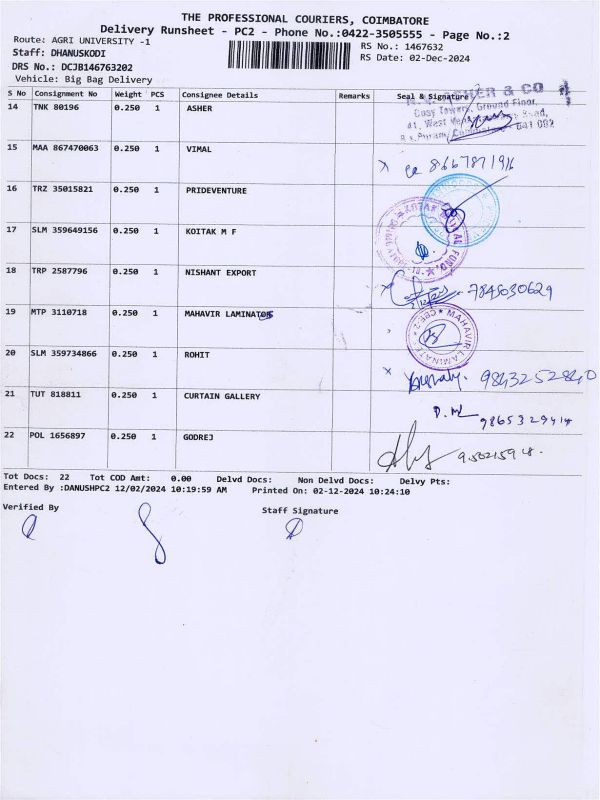 THE PROFESSIONAL COURIERS, COIMBATORE
Delivery Runsheet - PC2 - Phone No.:0422-3505555 - Page No.:2
Route: AGRI UNIVERSITY -1
RS No.: 1467632
Staff: DHANUSKODI
RS Date: 02-Dec-2024
DRS No.: DCJB146763202
Vehicle: Big Bag Delivery
S No Consignment No Weight PCS Consignee Details Remarks Seal & Signature
14 TNK 80196 0.250 1 ASHER
ASHER & CO
Cosy Towers, Ground Floor,
41, West
641 002
15 MAA 867470063 0.250 1 VIMAL
8667871916
16 TRZ 35015821 0.250 1 PRIDEVENTURE
17 SLM 359649156 0.250 1 KOITAK M F
18 TRP 2587796 0.250 1 NISHANT EXPORT
7845030629
19 MTP 3110718 0.250 1 MAHAVIR LAMINATOR
MAHAVIR LAMINATES
20 SLM 359734866 0.250 1 ROHIT
9843252840
21 TUT 818811 0.250 1 CURTAIN GALLERY
9865329414
22 POL 1656897 0.250 1 GODREJ
Tot Docs: 22 Tot COD Amt: 0.00 Delvd Docs: Non Delvd Docs: Delvy Pts:
Entered By :DANUSHPC2 12/02/2024 10:19:59 AM Printed On: 02-12-2024 10:24:10
Verified By Staff Signature